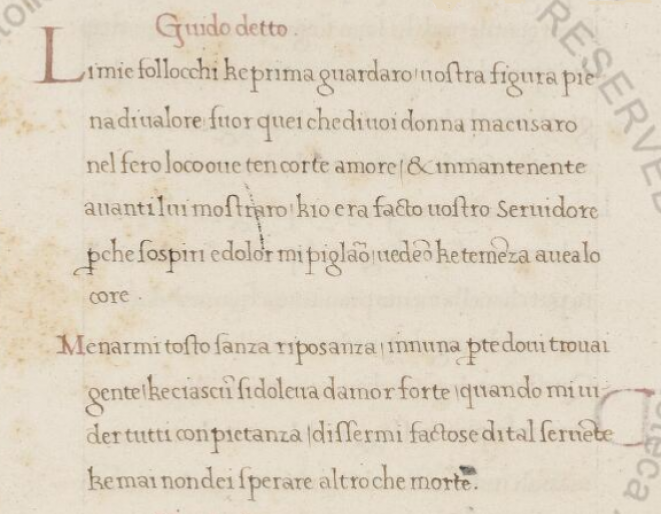 Guido detto
Limie follocchi ke prima guardaro uoſtra figura pie
na di ualore fuor quei che di uoi donna macusaro
nel fero loco oue ten corte amore / & inmantenente
auanti lui moſtraro kio era facto uoſtro Seruidore
ꝑche ſospiri e dolor mi piglaõ / uedeõ ke temẽza auea lo
core .
Menarmi toſto ſanza riposanza / innuna ꝑte doui trouai
gente / ke ciascũ ſi doleua damor forte / quando mi ui
der tutti con pietanza / diſſermi facto se di tal ſeruẽte
ke mai non dei ſperare altro che morte .
RESERVED
oteca